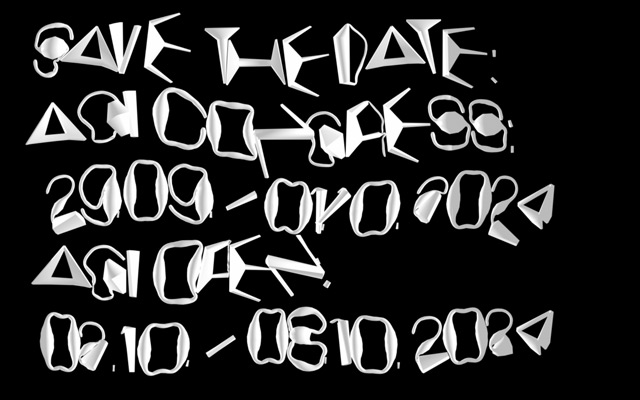 SAVE THE DATE:
AGI CONGRESS:
29.09. – 01.10. 2024
AGI OPEN:
02.10. – 03.10. 2024